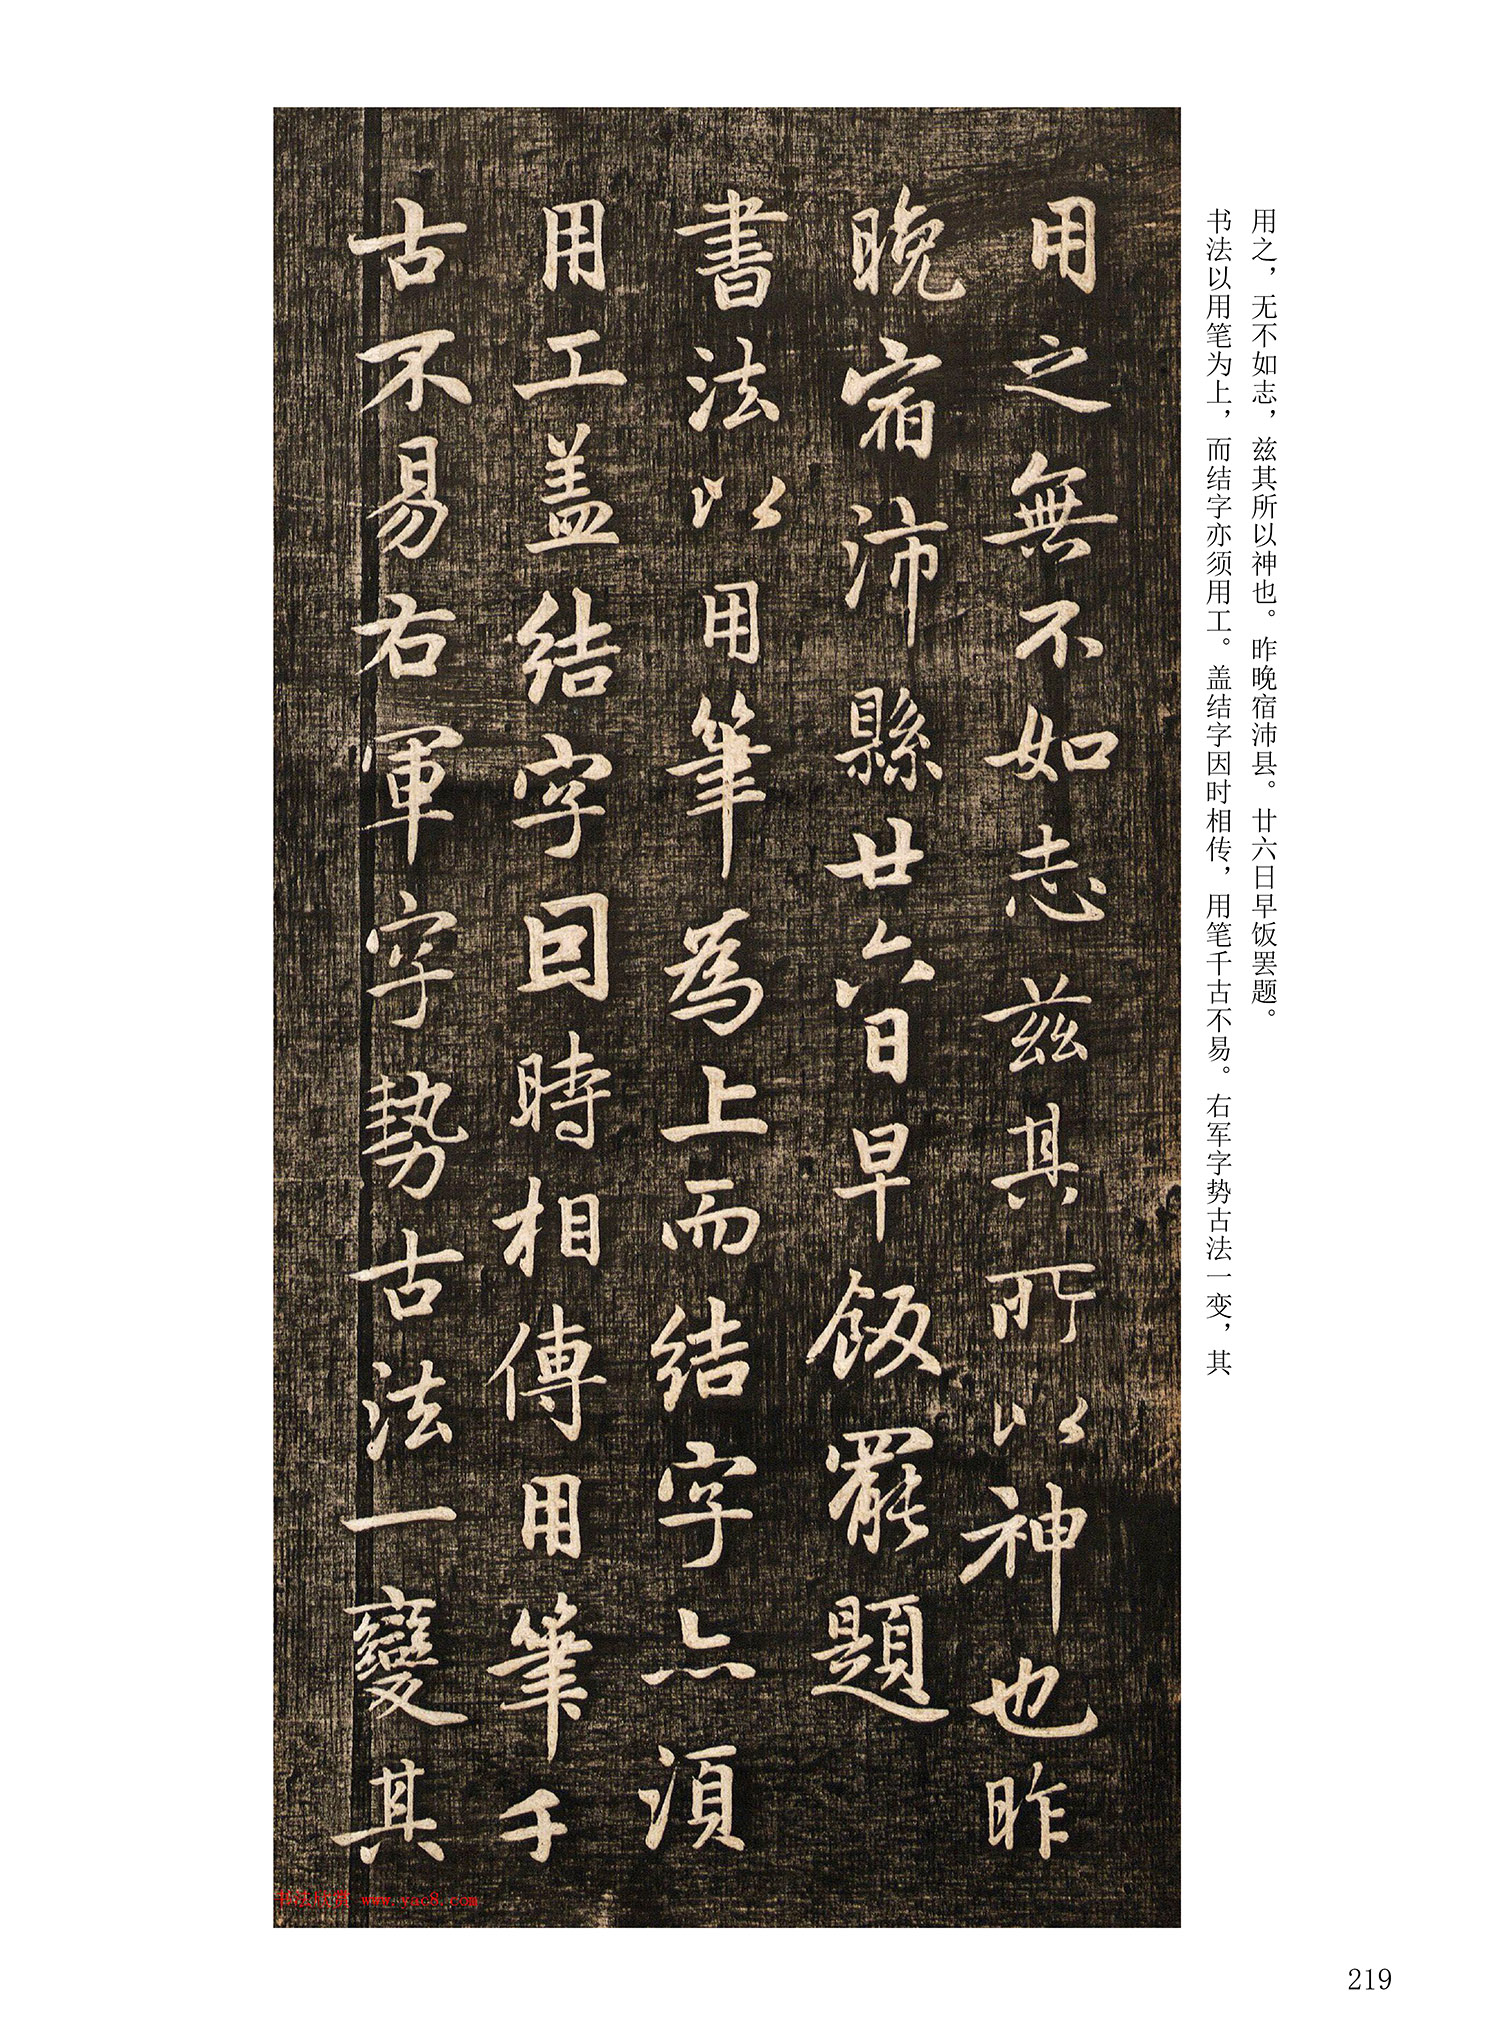 用之，无不如志，兹其所以神也。昨晚宿沛县。廿六日早饭罢题。
书法以用笔为上，而结字亦须用工。盖结字因时相传，用笔千古不易。右军字势古法一变，其
用之無不如志兹其所以神也昨
晚宿沛縣廿六日早飯罷題
書法以用筆為上而结字亦須
用工盖结字因時相傳用筆千
古不易右軍字勢古法一變其
书法欣赏 www.yac8.com
219